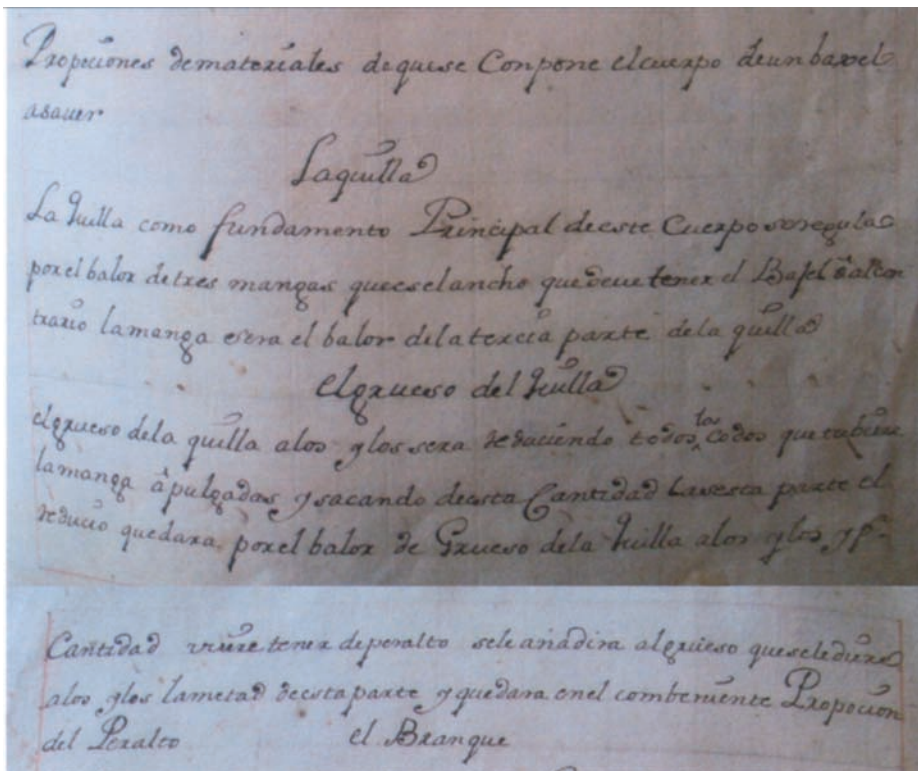 Propociones de materiales de que se Conpone el cuerpo de un baxel
asauer
La quilla
La quilla como fundamento Principal de este Cuerpo se regula
por el balor de tres mangas que es el ancho que deue tener el Bajel ô al con
trario la manga sera el balor de la tercia parte de la quilla
el grueso del quilla
el grueso de la quilla a los yglos sera reduciendo todos los codos que tubiere
la manga â pulgadas y sacando de esta Cantidad la sesta parte el
reducio quedara por el balor de Grueso de la quilla a los yglos y p.
Cantidad tener de peralto se le añadira al grueso que se le diere
a los yglos la metad de esta parte y quedara en el combeniente Propocion
del Peralto el Branque